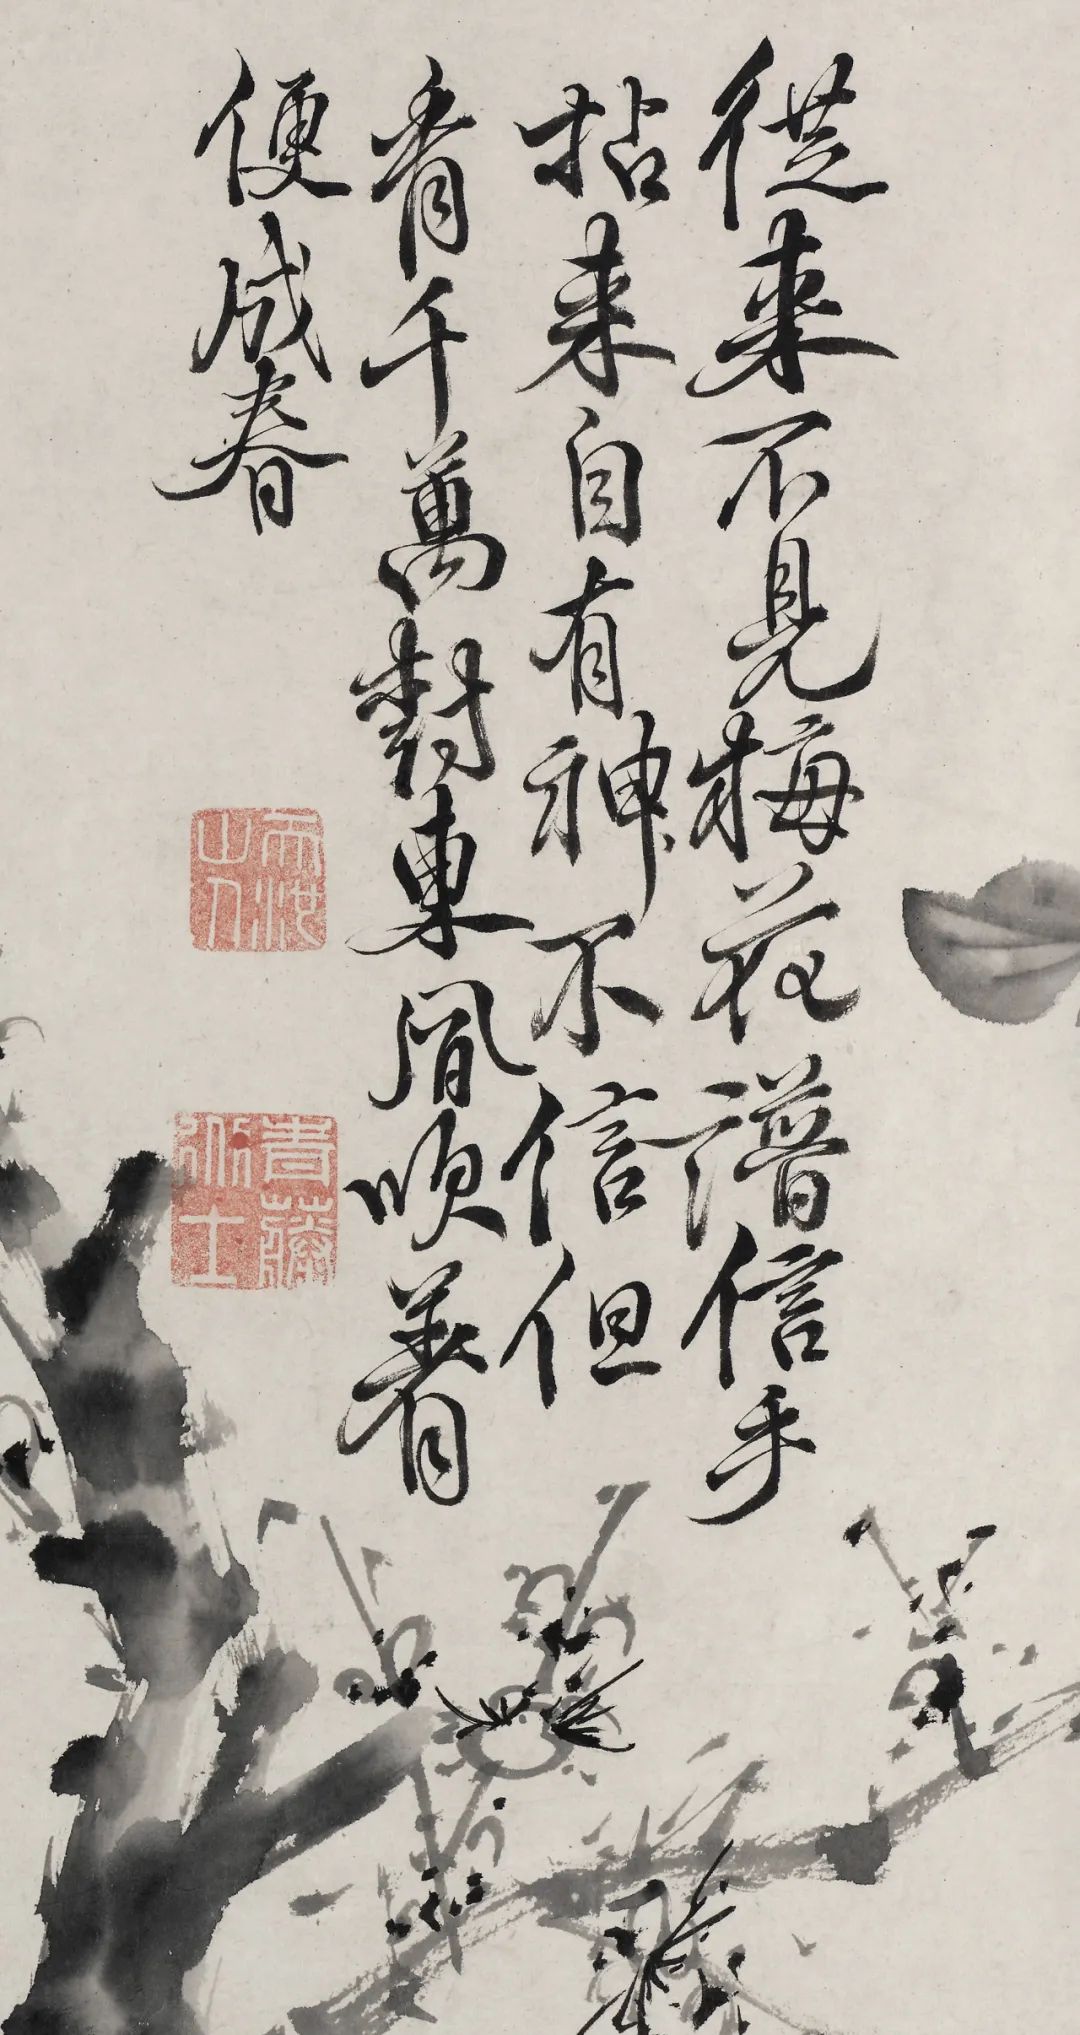 從來不見梅花譜信手
拈来自有神不信但
看千萬樹東風吹着
便成春
天池山人
青藤道士